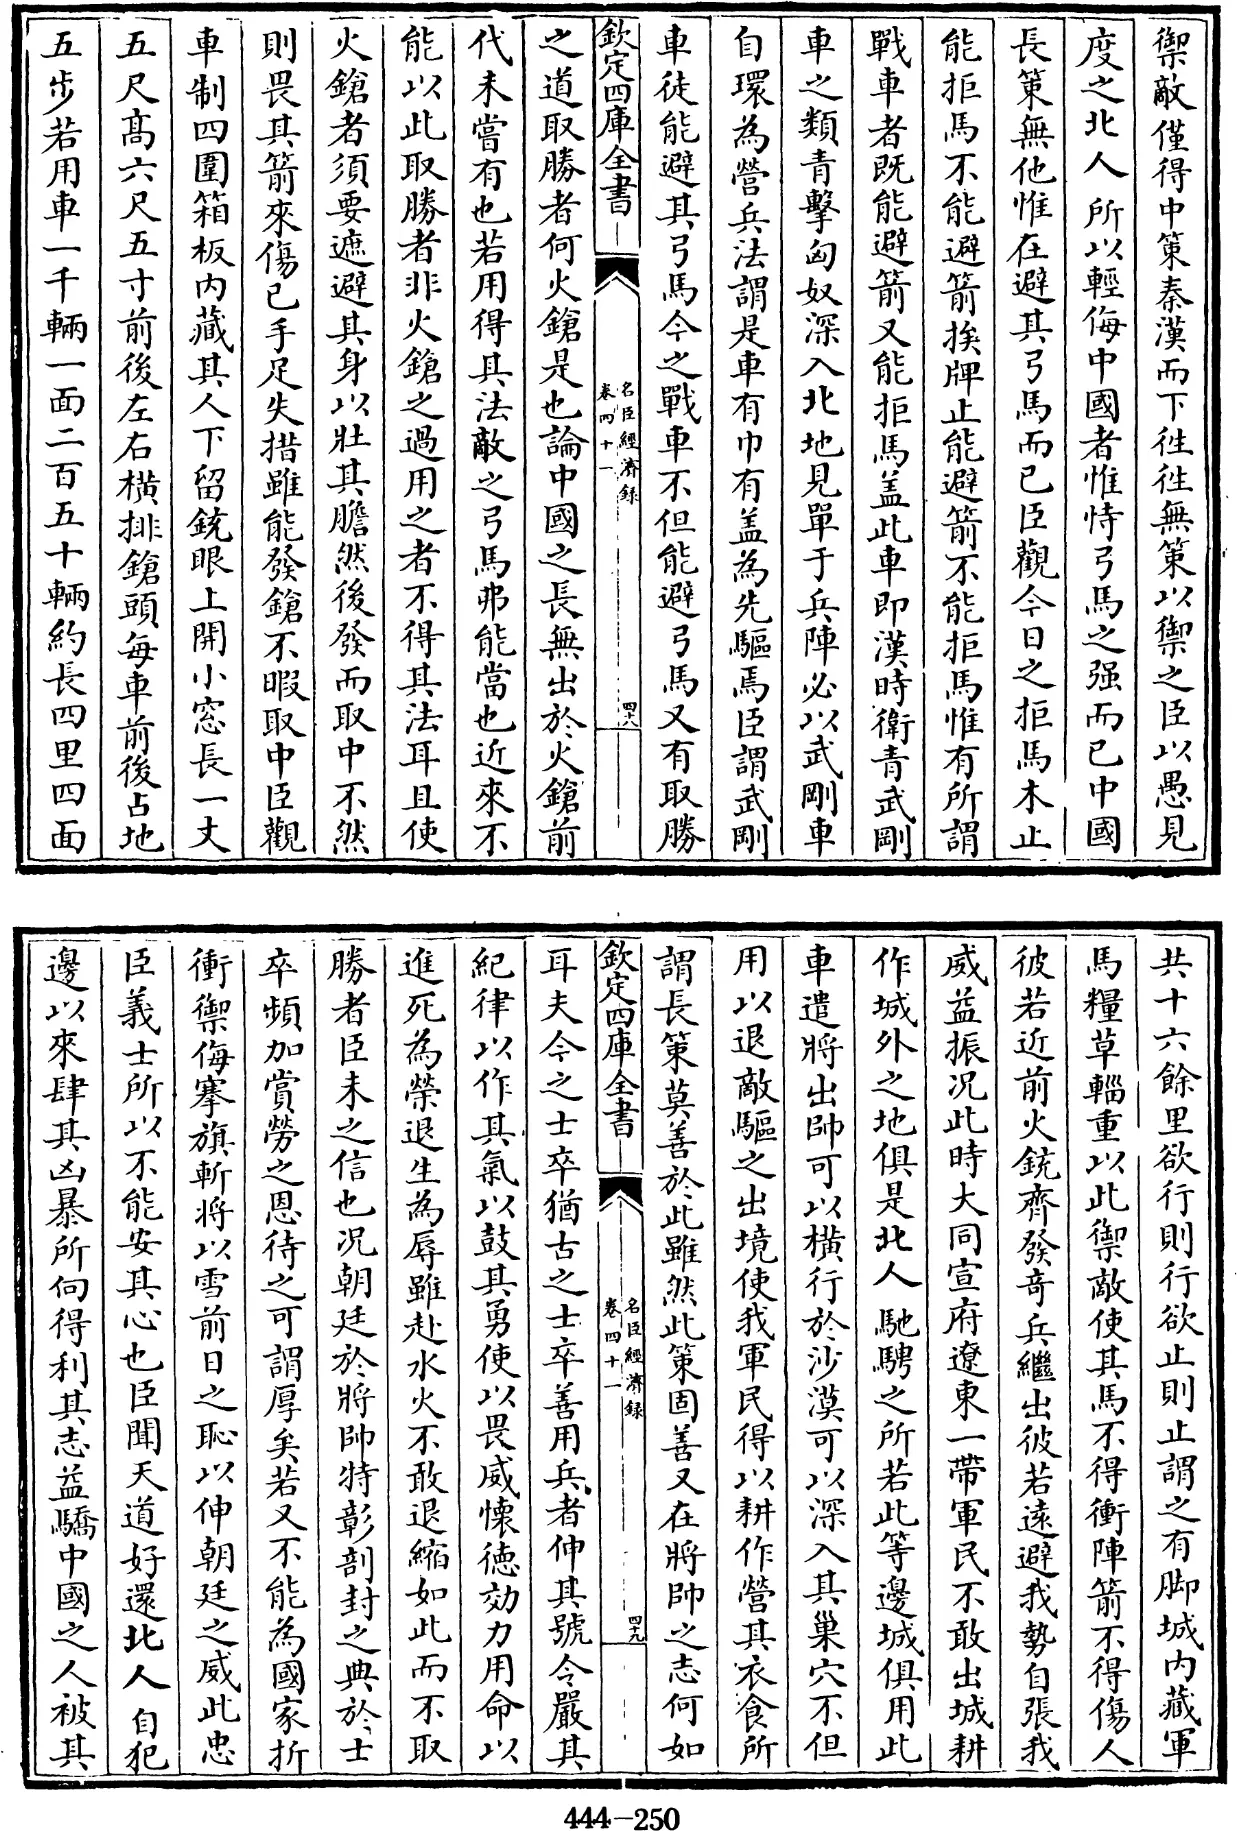 禦敵僅得中策秦漢而下徃徃無策以禦之臣以愚見
度之北人所以輕侮中國者惟恃弓馬之强而已中國
長策無他惟在避其弓馬而已臣觀今日之拒馬木止
能拒馬不能避箭挨牌止能避箭不能拒馬惟有所謂
戰車者既能避箭又能拒馬盖此車即漢時衛青武剛
車之類青擊匈奴深入北地見單于兵陣必以武剛車
自環為營兵法謂是車有巾有盖為先驅焉臣謂武剛
車徒能避其弓馬今之戰車不但能避弓馬又有取勝
欽定四庫全書
名臣經濟録
卷四十一
四十八
之道取勝者何火鎗是也論中國之長無出於火鎗前
代未嘗有也若用得其法敵之弓馬弗能當也近來不
能以此取勝者非火鎗之過用之者不得其法耳且使
火鎗者須要遮避其身以壯其膽然後發而取中不然
則畏其箭來傷已手足失措雖能發鎗不暇取中臣觀
車制四圍箱板内藏其人下留銃眼上開小窓長一丈
五尺髙六尺五寸前後左右橫排鎗頭每車前後占地
五步若用車一千輛一面二百五十輛約長四里四面
共十六餘里欲行則行欲止則止謂之有脚城内藏軍
馬糧草輜重以此禦敵使其馬不得衝陣箭不得傷人
彼若近前火銃齊發奇兵繼出彼若遠避我勢自張我
威益振况此時大同宣府遼東一帶軍民不敢出城耕
作城外之地俱是北人馳騁之所若此等邊城俱用此
車遣將出帥可以橫行於沙漠可以深入其巢穴不但
用以退敵驅之出境使我軍民得以耕作營其衣食所
謂長策莫善於此雖然此策固善又在將帥之志何如
欽定四庫全書
名臣經濟録
卷四十一
四十九
耳夫今之士卒猶古之士卒善用兵者伸其號令嚴其
紀律以作其氣以鼓其勇使以畏威懐徳効力用命以
進死為榮退生為辱雖赴水火不敢退縮如此而不取
勝者臣未之信也况朝廷於將帥特彰剖封之典於士
卒頻加賞勞之恩待之可謂厚矣若又不能為國家折
衝禦侮搴旗斬將以雪前日之恥以伸朝廷之威此忠
臣義士所以不能安其心也臣聞天道好還北人自犯
邊以來肆其凶暴所向得利其志益驕中國之人被其
444-250